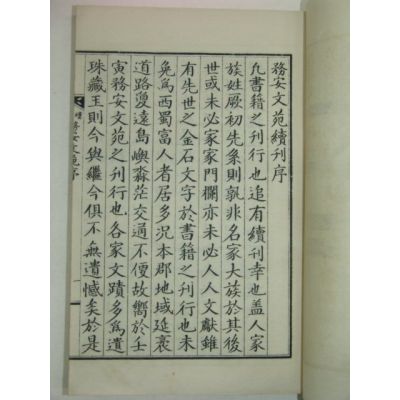 務安文苑續刊序
凢書籍之刊行也追有續刊幸也盖人家
族姓厥初先系則孰非名家大族於其後
世或未必家家門欄亦未必人人文獻雖
有先世之金石文字於書籍之刊行也未
免爲西蜀富人者居多況本郡地域延袤
道路夐遠島嶼淼茫交通不便故嚮於壬
寅務安文苑之刊行也各家文蹟多爲遺
珠藏王則今與繼今俱不無遺憾矣於是
務安文苑序